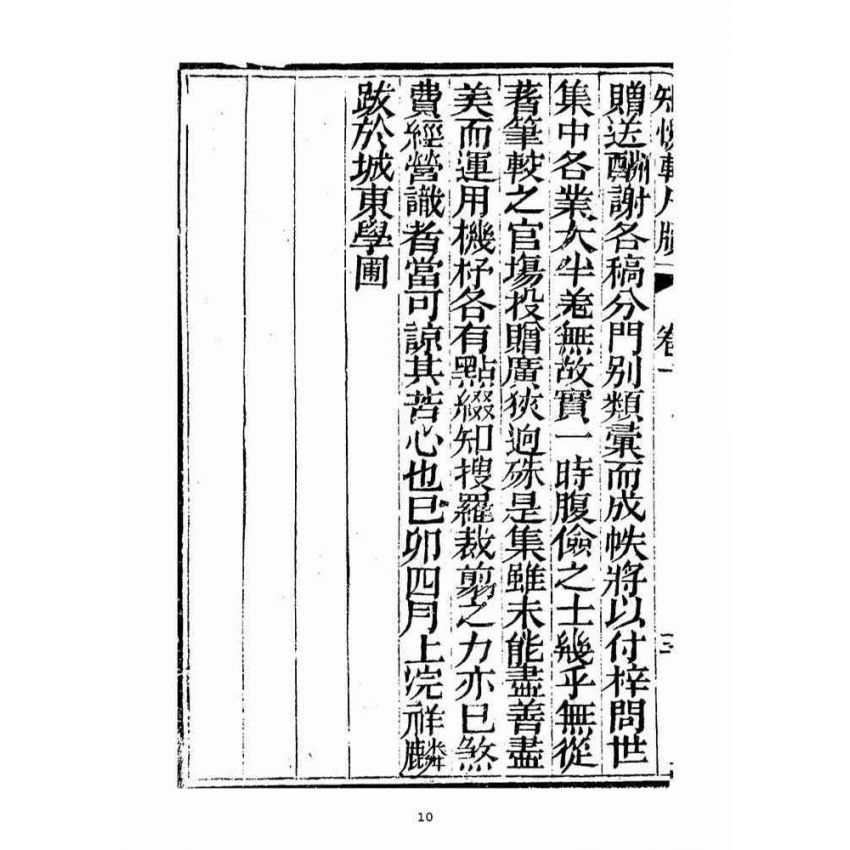 知愧軒尺牘 卷一 三
贈送酬謝各稿分門別類彙而成帙將以付梓問世
集中各業大半羗無故實一時腹儉之士幾乎無從
著筆較之官塲投贈廣狹逈殊是集雖未能盡善盡
美而運用機杼各有點綴知搜羅裁剪之力亦已煞
費經營識者當可諒其苦心也已卯四月上浣祥麟
跋於城東學圃
10